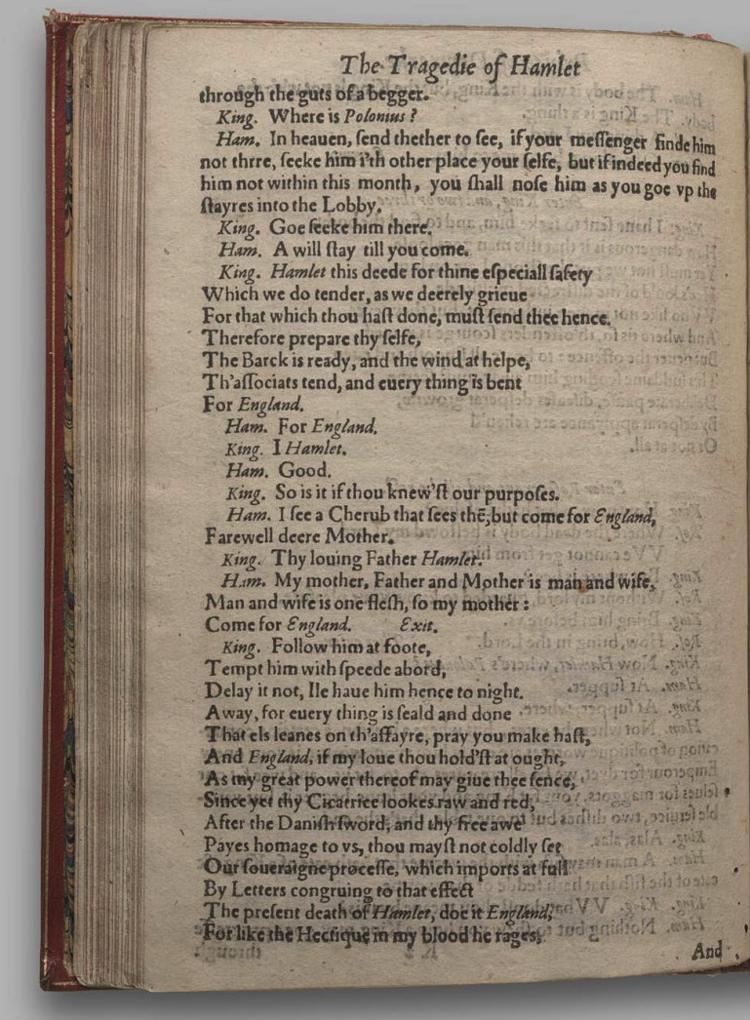 The Tragedie of Hamlet
through the guts of a begger.
King. Where is Polonius ?
Ham. In heauen, ſend thether to ſee, if your meſſenger finde him
not thrre, ſeeke him i'th other place your ſelfe, but if indeed you find
him not within this month, you ſhall noſe him as you goe vp the
ſtayres into the Lobby.
King. Goe ſeeke him there.
Ham. A will ſtay till you come.
King. Hamlet this deede for thine eſpeciall ſafety
Which we do tender, as we deerely grieue
For that which thou haſt done, muſt ſend thee hence.
Therefore prepare thy ſelfe,
The Barck is ready, and the wind at helpe,
Th'aſſociats tend, and euery thing is bent
For England.
Ham. For England.
King. I Hamlet.
Ham. Good.
King. So is it if thou knew'ſt our purpoſes.
Ham. I ſee a Cherub that ſees thē, but come for England,
Farewell deere Mother.
King. Thy louing Father Hamlet.
Ham. My mother, Father and Mother is man and wife,
Man and wife is one fleſh, ſo my mother :
Come for England. Exit.
King. Follow him at foote,
Tempt him with ſpeede abord,
Delay it not, Ile haue him hence to night.
Away, for euery thing is ſeald and done
That els leanes on th'affayre, pray you make haſt,
And England, if my loue thou hold'ſt at ought,
As my great power thereof may giue thee ſence,
Since yet thy Cicatrice lookes raw and red,
After the Daniſh ſword, and thy free awe
Payes homage to vs, thou mayſt not coldly ſet
Our ſoueraigne proceſſe, which imports at full
By Letters congruing to that effect
The preſent death of Hamlet, doe it England,
For like the Hectique in my blood he rages,
And